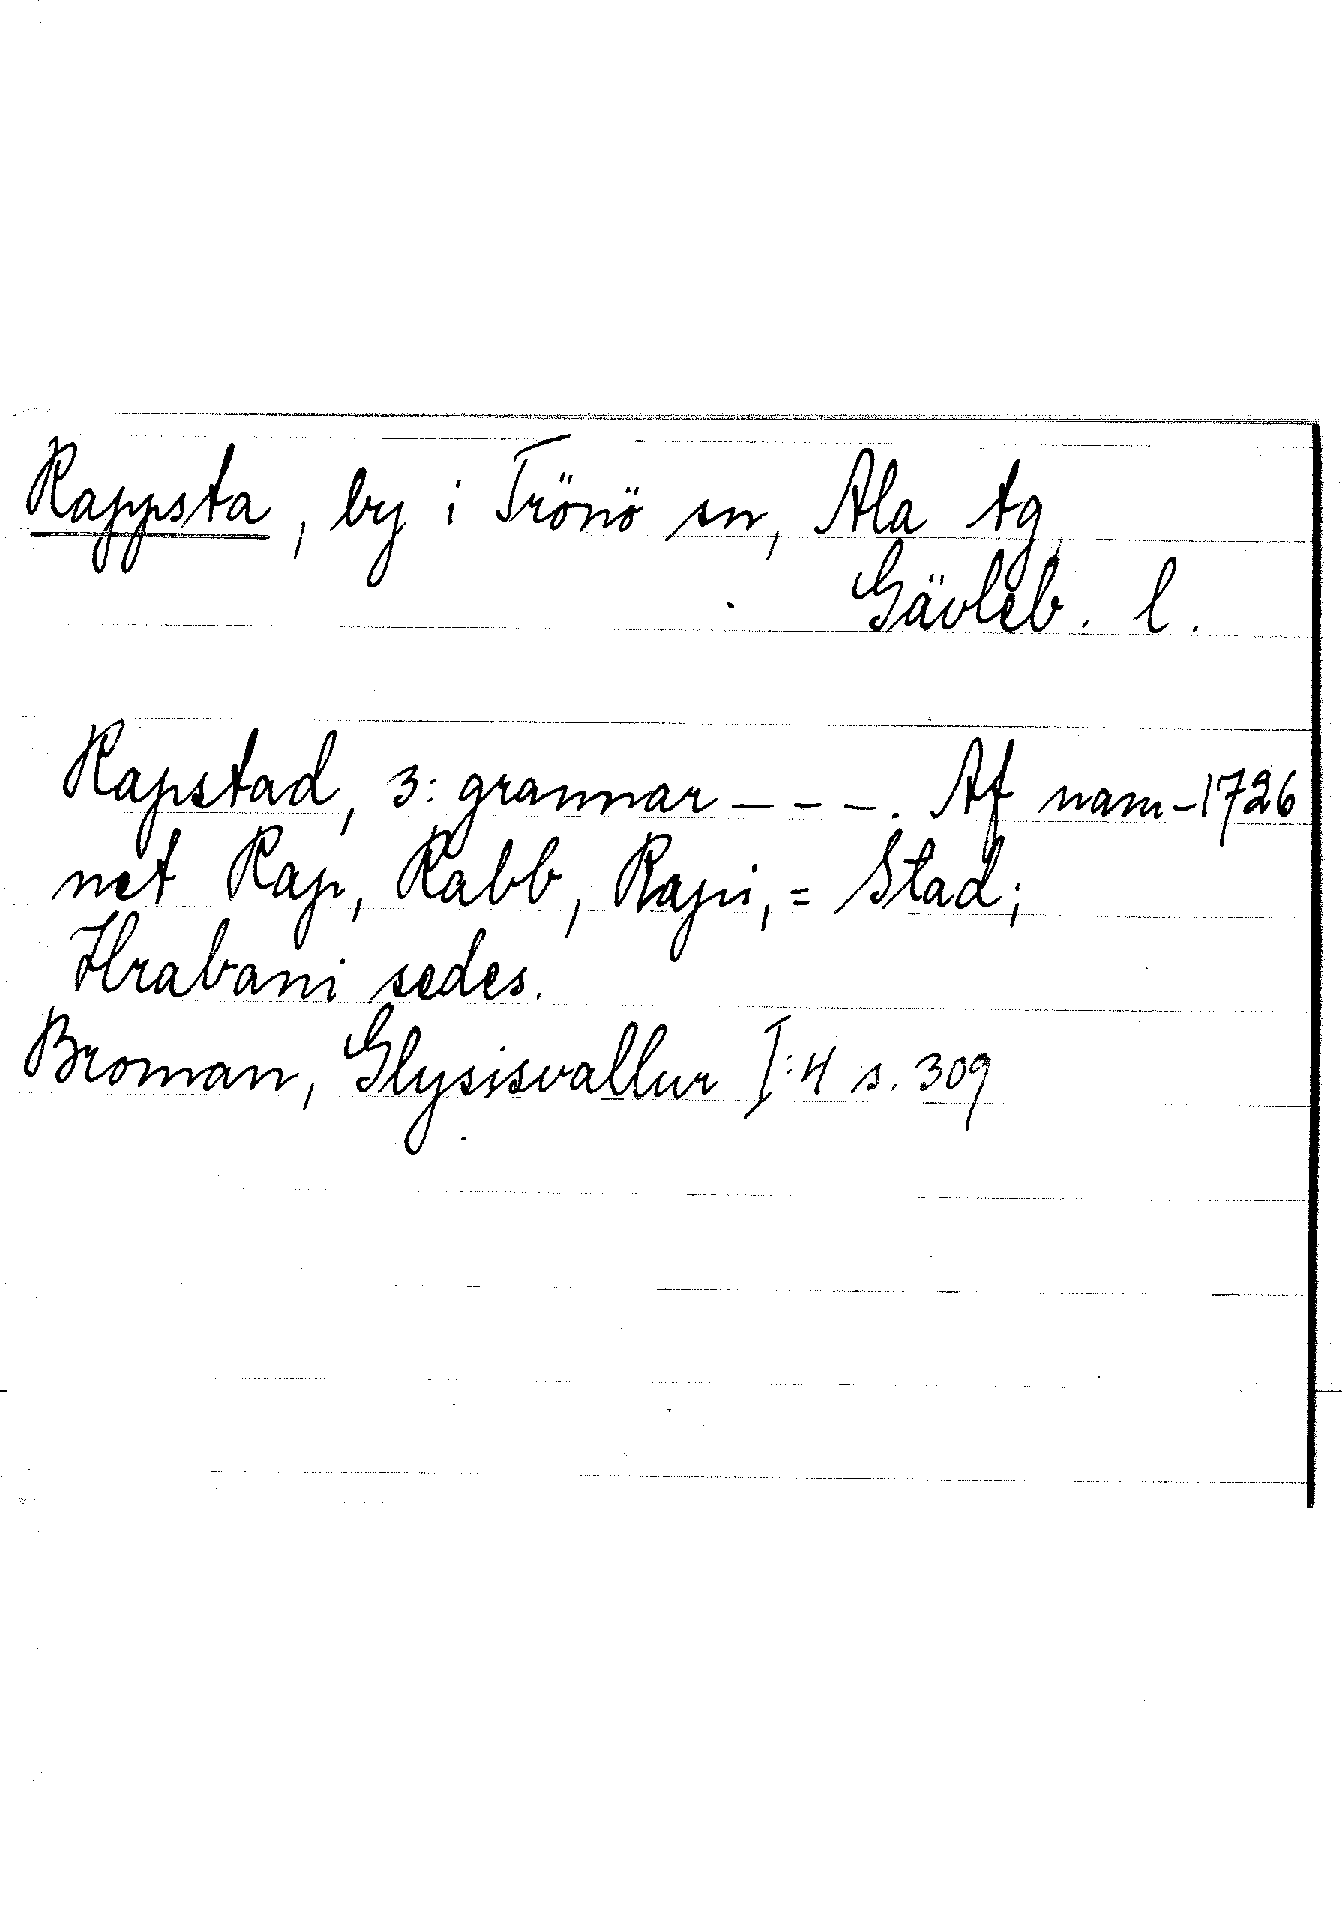 Rappsta, by i Trönö sn, Ala tg
Gävleb. l.
Rapstad, 3: grannar – – –. Af nam- 1726
net Rap, Rabb, Rapi, = Stad;
Hrabani sedes.
Broman, Glysisvallur I:4 s. 309